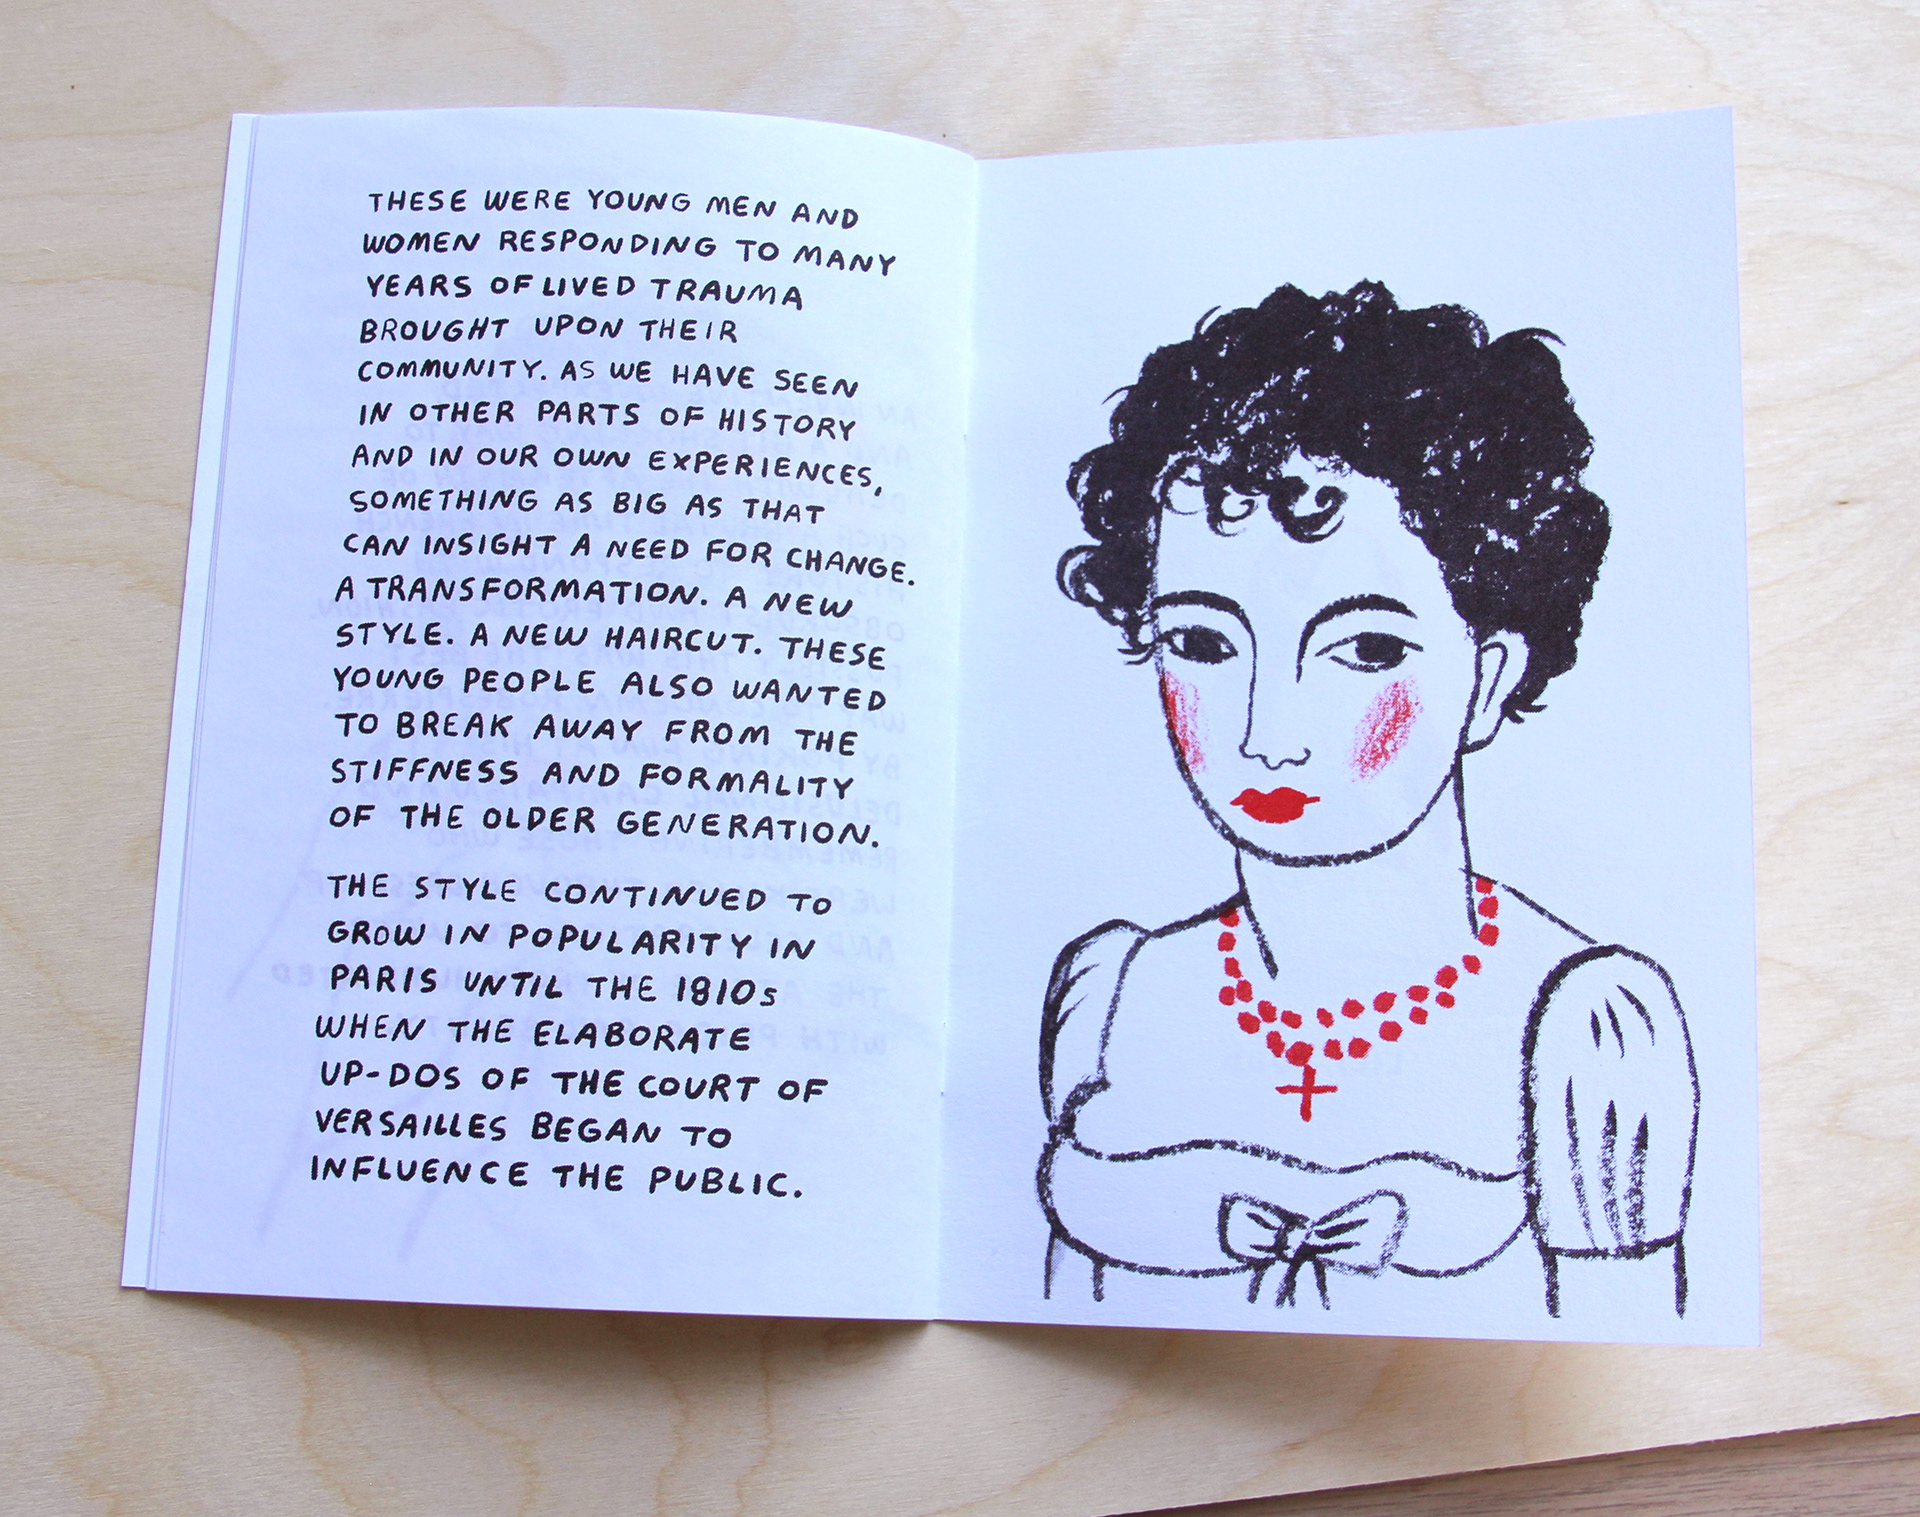 THESE WERE YOUNG MEN AND
WOMEN RESPONDING TO MANY
YEARS OF LIVED TRAUMA
BROUGHT UPON THEIR
COMMUNITY. AS WE HAVE SEEN
IN OTHER PARTS OF HISTORY
AND IN OUR OWN EXPERIENCES,
SOMETHING AS BIG AS THAT
CAN INSIGHT A NEED FOR CHANGE.
A TRANSFORMATION. A NEW
STYLE. A NEW HAIRCUT. THESE
YOUNG PEOPLE ALSO WANTED
TO BREAK AWAY FROM THE
STIFFNESS AND FORMALITY
OF THE OLDER GENERATION.
THE STYLE CONTINUED TO
GROW IN POPULARITY IN
PARIS UNTIL THE 1810s
WHEN THE ELABORATE
UP-DOS OF THE COURT OF
VERSAILLES BEGAN TO
INFLUENCE THE PUBLIC.